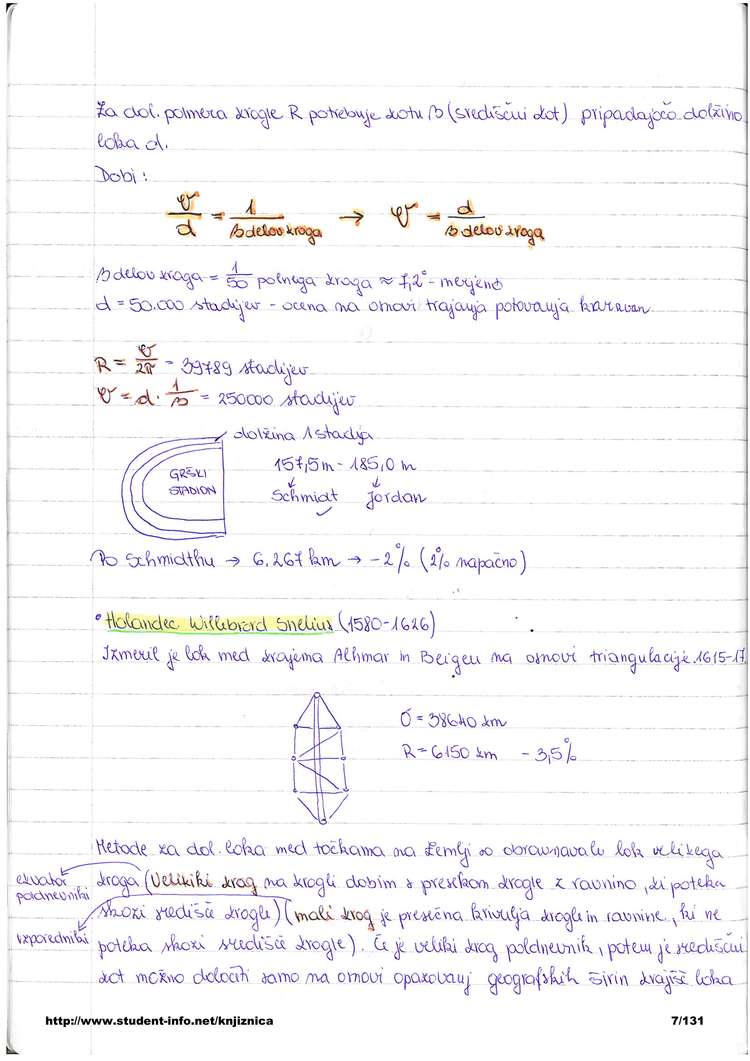 Za dol. polmera krogle R potrebuje kotu β (središčni kot) pripadajočo dolžino
loka d.
Dobi:
O/d = 1/β delov kroga → O = d/β delov kroga
β delov kroga = 1/50 polnega kroga ≈ 7,2° - merjeno
d = 50.000 stadijev - ocena na osnovi trajanja potovanja karavan
R = O/2π = 39789 stadijev
O = d · 1/β = 250000 stadijev
dolžina 1 stadija
GRŠKI
STADION
157,5 m - 185,0 m
↓ ↓
Schmidt Jordan
Po Schmidthu → 6,267 km → -2% (2% napačno)
• Holandec Willebrord Snelius (1580-1626)
Izmeril je lok med krajema Alhmar in Beigen na osnovi triangulacije. 1615-17
O = 38640 km
R = 6150 km - 3,5%
Metode za dol. loka med točkama na Zemlji so obravnavale lok velikega
ekvator
poldnevniki
kroga (Velikiki krog na krogli dobim s presekom krogle z ravnino, ki poteka
skozi središče krogle) (mali krog je presečna krivulja krogle in ravnine, ki ne
vzporedniki
poteka skozi središče krogle). Če je veliki krog poldnevnik, potem je središčni
kot možno določiti samo na osnovi opazovanj geografskih širin krajišč loka
http://www.student-info.net/knjiznica
7/131